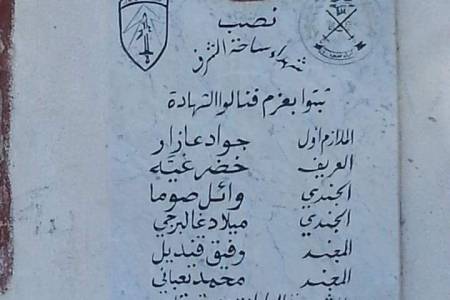 نصب
شهداء ساحة الشرف
ثبتوا بعزم فنالوا الشهادة
الملازم اول جواد عازار
العريف خضر غيّه
الجندي وائل صوما
الجندي ميلاد غا البرجي
المجند وفيق قنديل
المجند محمد يعباني